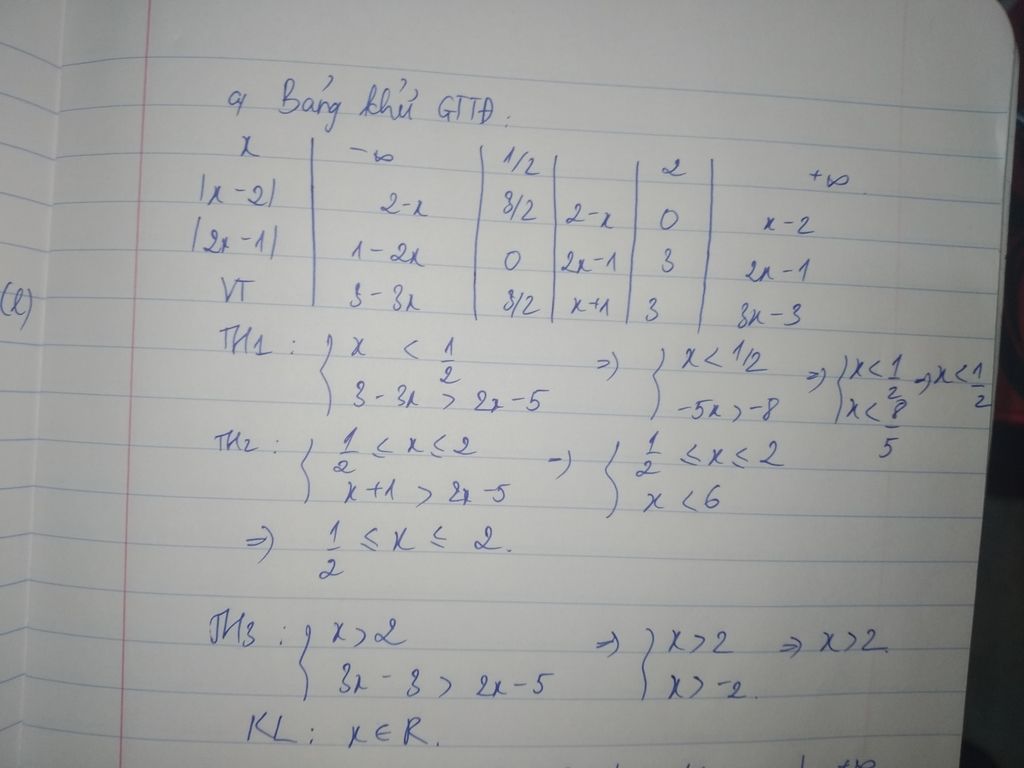 a) Bảng khử GTTĐ:
x | -∞ | 1/2 | | 2 | +∞
|x-2| | 2-x | 3/2 | 2-x | 0 | x-2
|2x-1| | 1-2x | 0 | 2x-1 | 3 | 2x-1
(l)
VT | 3-3x | 3/2 | x+1 | 3 | 3x-3
TH1: { x < 1/2 ; 3-3x > 2x-5 => { x < 1/2 ; -5x > -8 => { x < 1/2 ; x < 8/5 => x < 1/2
TH2: { 1/2 ≤ x ≤ 2 ; x+1 > 2x-5 => { 1/2 ≤ x ≤ 2 ; x < 6
=> 1/2 ≤ x ≤ 2.
TH3: { x > 2 ; 3x-3 > 2x-5 => { x > 2 ; x > -2. => x > 2.
KL: x ∈ R.